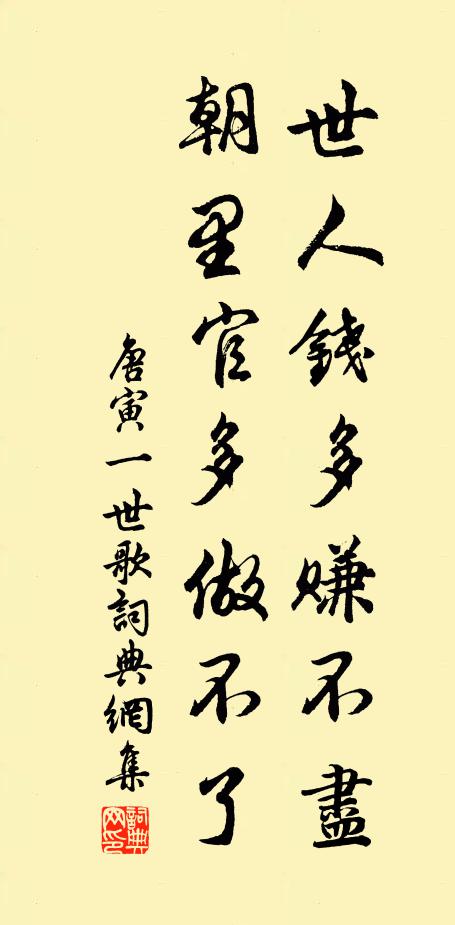 世人錢多賺不盡
朝里官多做不了
唐寅一世歌詞典網集
詞典网印